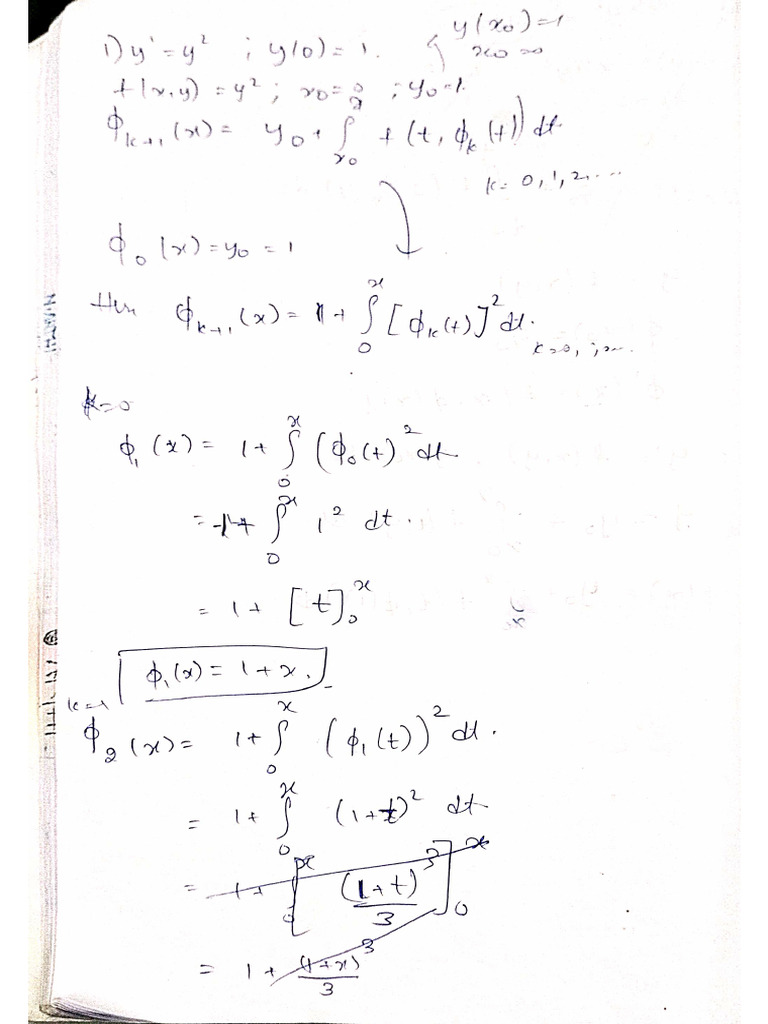 y(x₀)=1
1) y' = y² ; y(0) = 1. x₀=0
f(x,y) = y² ; x₀=0 ; y₀=1.
ϕₖ₊₁(x) = y₀ + ∫ₓ₀ˣ f(t, ϕₖ(t)) dt
k = 0, 1, 2, ...
ϕ₀(x) = y₀ = 1
Here ϕₖ₊₁(x) = 1 + ∫₀ˣ [ϕₖ(t)]² dt.
k=0
ϕ₁(x) = 1 + ∫₀ˣ (ϕ₀(t)² dt
= 1 + ∫₀ˣ 1² dt.
= 1 + [t]₀ˣ
ϕ₁(x) = 1 + x.
k=1
ϕ₂(x) = 1 + ∫₀ˣ (ϕ₁(t))² dt.
= 1 + ∫₀ˣ (1+t)² dt
= 1 + [(1+t)³/3]₀ˣ
= 1 + (1+x)³/3